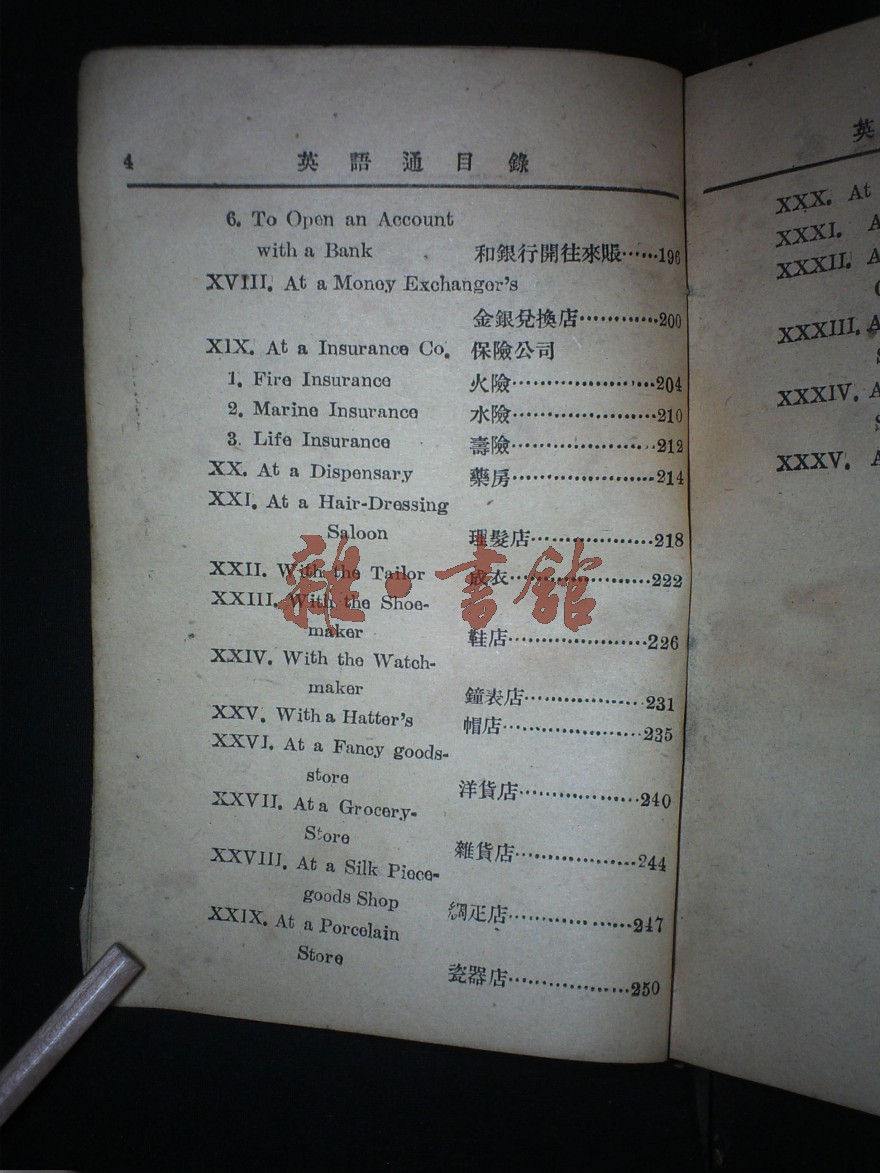 4 英語通目錄
6. To Open an Account
with a Bank 和銀行開往來賬······196
XVIII. At a Money Exchanger's
金銀兌換店············200
XIX. At a Insurance Co. 保險公司
1. Fire Insurance 火險·····················204
2. Marine Insurance 水險·····················210
3. Life Insurance 壽險·····················212
XX. At a Dispensary 藥房·····················214
XXI. At a Hair-Dressing
Saloon 理髮店··················218
XXII. With the Tailor 衣·····················222
XXIII. With the Shoe-
maker 鞋店·····················226
XXIV. With the Watch-
maker 鐘表店··················231
XXV. With a Hatter's 帽店·····················235
XXVI. At a Fancy goods-
store 洋貨店··················240
XXVII. At a Grocery-
Store 雜貨店··················244
XXVIII. At a Silk Piece-
goods Shop 綢疋店··················247
XXIX. At a Porcelain
Store 瓷器店··················250
雜·書館
英
XXX. At
XXXI. A
XXXII. A
XXXIII. A
S
XXXIV. A
S
XXXV. A